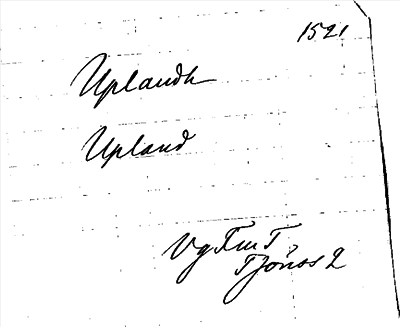 1521
Uplandh
Upland
Vg Fm T
Tjönos 2